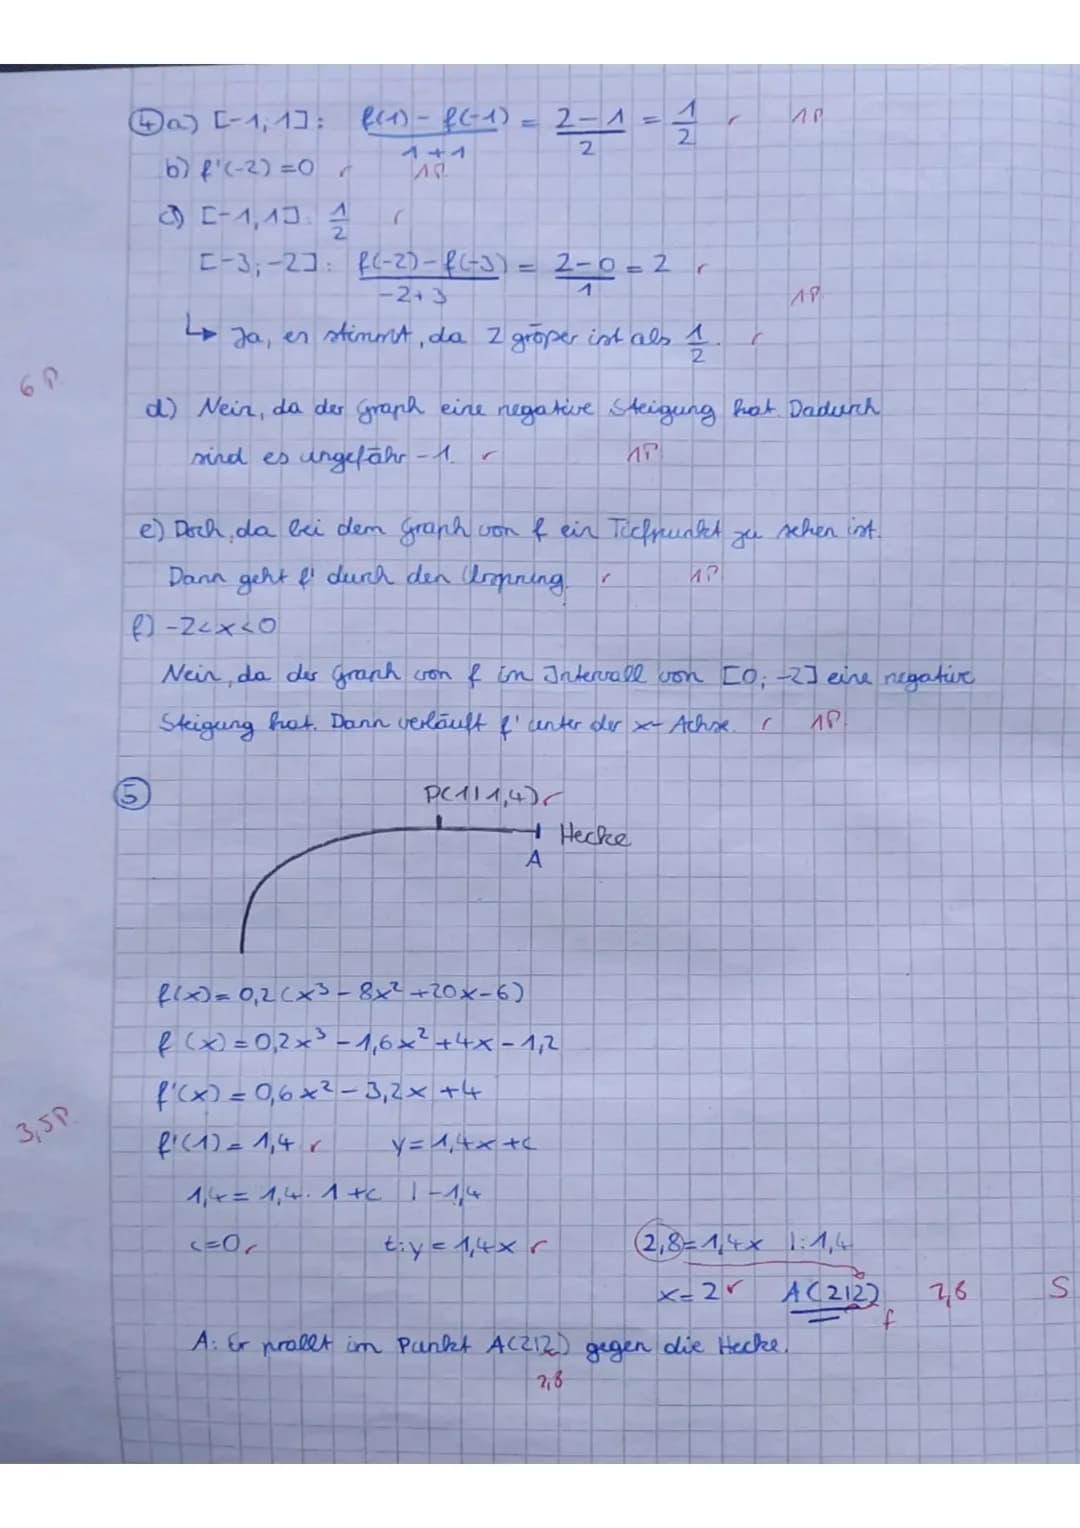 ④a) [-1,1]: f(1) - f(-1) / 1+1 = 2-1 / 2 = 1/2 1P
b) f'(-2) = 0 1P
c) [-1,1]: 1/2
[-3;-2]: f(-2) - f(-3) / -2+3 = 2-0 / 1 = 2
1P
↳ Ja, er stimmt, da 2 größer ist als 1/2.
6 P.
d) Nein, da der Graph eine negative Steigung hat. Dadurch
sind es ungefähr -1. 1P
e) Doch, da bei dem Graph von f ein Tiefpunkt zu sehen ist.
Dann geht f' durch den Ursprung. 1P
f) -2<x<0
Nein, da der Graph von f im Intervall von [0;-2] eine negative
Steigung hat. Dann verläuft f' unter der x-Achse. 1P
⑤
P(1|1,4)
Hecke
A
f(x) = 0,2(x³ - 8x² + 20x - 6)
f(x) = 0,2x³ - 1,6x² + 4x - 1,2
f'(x) = 0,6x² - 3,2x + 4
3,5P.
f'(1) = 1,4 y = 1,4x + c
1,4 = 1,4 · 1 + c | -1,4
c=0 t: y = 1,4x 2,8 = 1,4x |:1,4
x = 2 A(2|2) 2,8 S
f
A: Er prallt im Punkt A(2|2) gegen die Hecke.
2,8